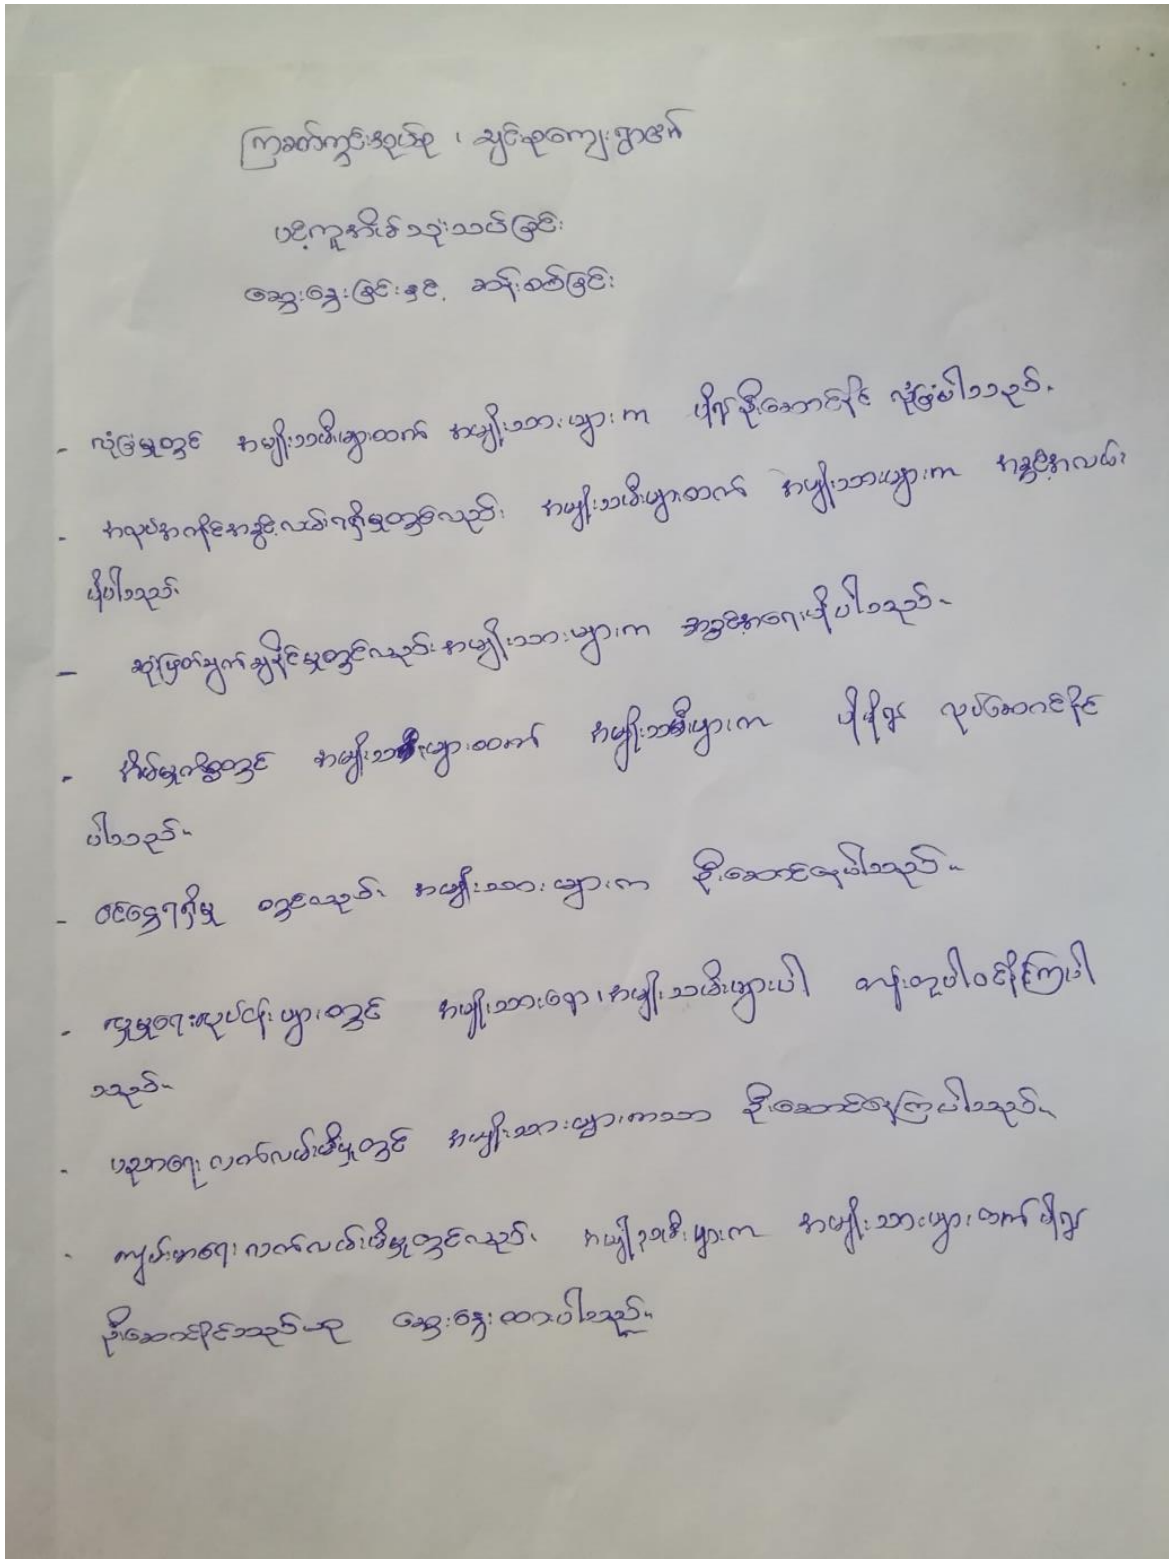 ကြခတ်ကွင်းအုပ်စု ၊ ချင်းစုကျေးရွာ
ပင့်ကူအိမ်သုံးသပ်ခြင်း
ဆွေးနွေးခြင်းနှင့် ဆန်းစစ်ခြင်း
- လုံခြုံမှုတွင် အမျိုးသမီးများထက် အမျိုးသားများက ပို၍ဦးဆောင်နိုင် လုံခြုံပါသည်။
- အလုပ်အကိုင်အခွင့်လမ်းရရှိမှုတွင်လည်း အမျိုးသမီးများထက် အမျိုးသားများက အခွင့်အလမ်း
ပိုပါသည်။
- ဆုံးဖြတ်ချက်ချနိုင်မှုတွင်လည်း အမျိုးသားများက အခွင့်အရေးပိုပါသည်။
- အိမ်မှုကိစ္စတွင် အမျိုးသားများထက် အမျိုးသမီးများက ပိုမို၍ လုပ်ဆောင်နိုင်
ပါသည်။
- ဝင်ငွေရရှိမှု တွင်လည်း အမျိုးသားများက ဦးဆောင်ရပါသည်။
- လူမှုရေးလုပ်ငန်းများတွင် အမျိုးသားရော၊ အမျိုးသမီးများပါ တန်းတူပါဝင်နိုင်ကြပါ
သည်။
- ပညာရေးလက်လှမ်းမီမှုတွင် အမျိုးသားများကသာ ဦးဆောင်နေကြပါသည်။
- ကျန်းမာရေးလက်လှမ်းမီမှုတွင်လည်း အမျိုးသမီးများက အမျိုးသားများထက်ပို၍
ဦးဆောင်နိုင်သည်ဟု ဆွေးနွေးထားပါသည်။